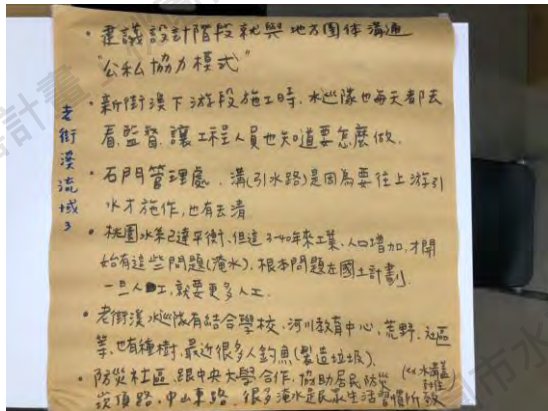 老街溪流域3
• 建議設計階段就與地方團体溝通
"公私協力模式"
• 新街溪下游段施工時, 水巡隊也每天都去
看監督, 讓工程人員也知道要怎麼做.
• 石門管理處. 溝(引水路)是因為要往上游引
水才施作, 也有去清
• 桃園水系已達平衡, 但這3-40年來工業、人口增加, 才開
始有這些問題(淹水), 根本問題在國土計劃.
一旦人工, 就要更多人工.
• 老街溪水巡隊有結合學校、河川教育中心、荒野、社區
等, 也有種樹, 最近很多人釣魚(製造垃圾).
• 防災社區, 跟中央大學合作, 協助居民防災
崁頂路、中山東路, 很多淹水是民眾生活習慣所致
計畫
市水